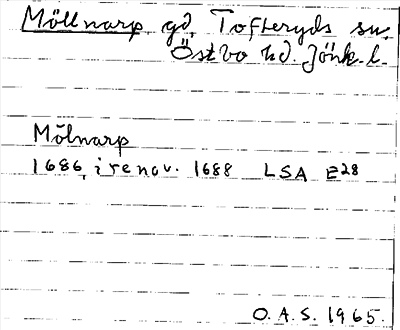 Möllnarp gd, Tofteryds sn.
Östbo hd. Jönk. l.
Mölnarp
1686, i renov. 1688 LSA E28
O. A. S. 1965.